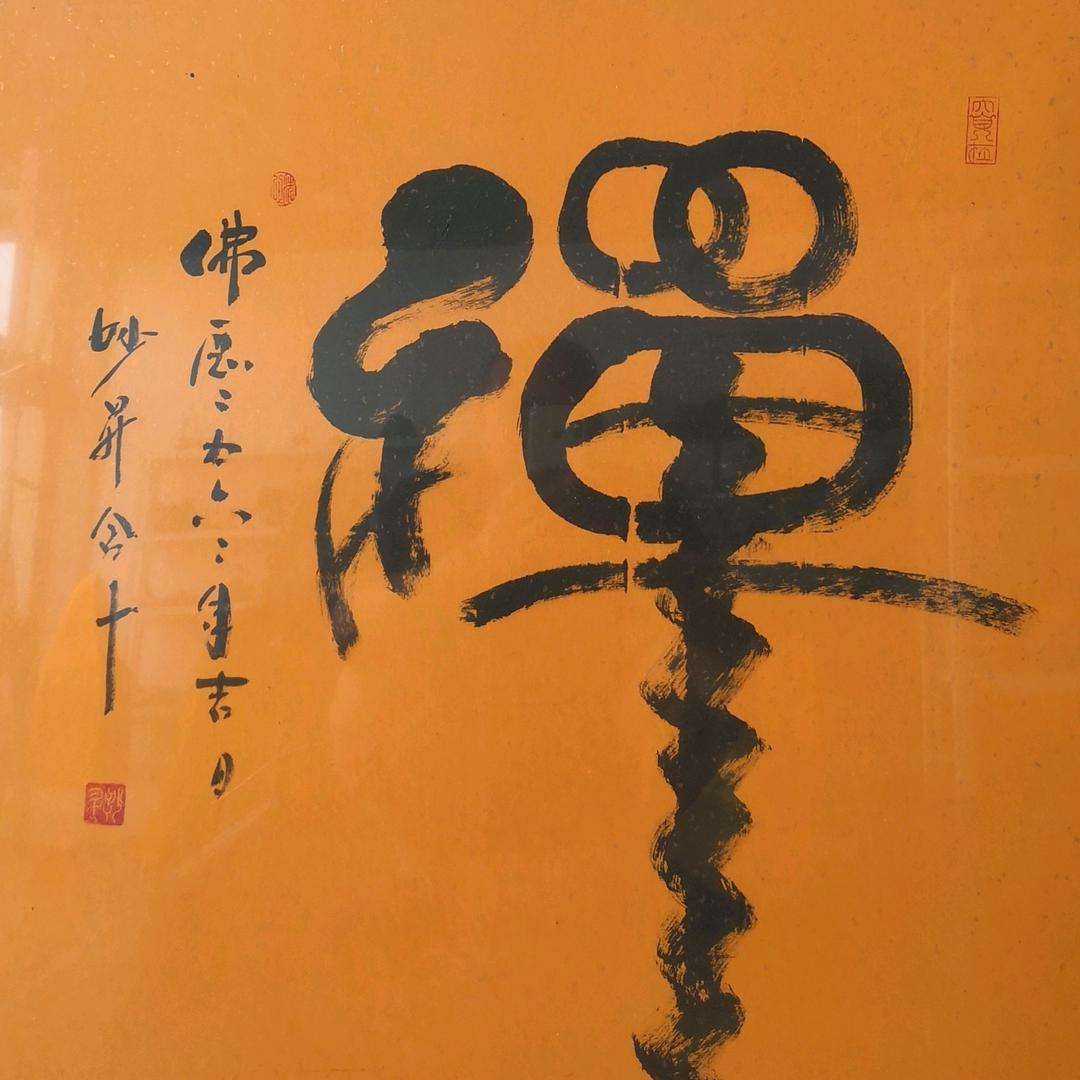 禪
佛歷二五六二年吉日
妙 合十